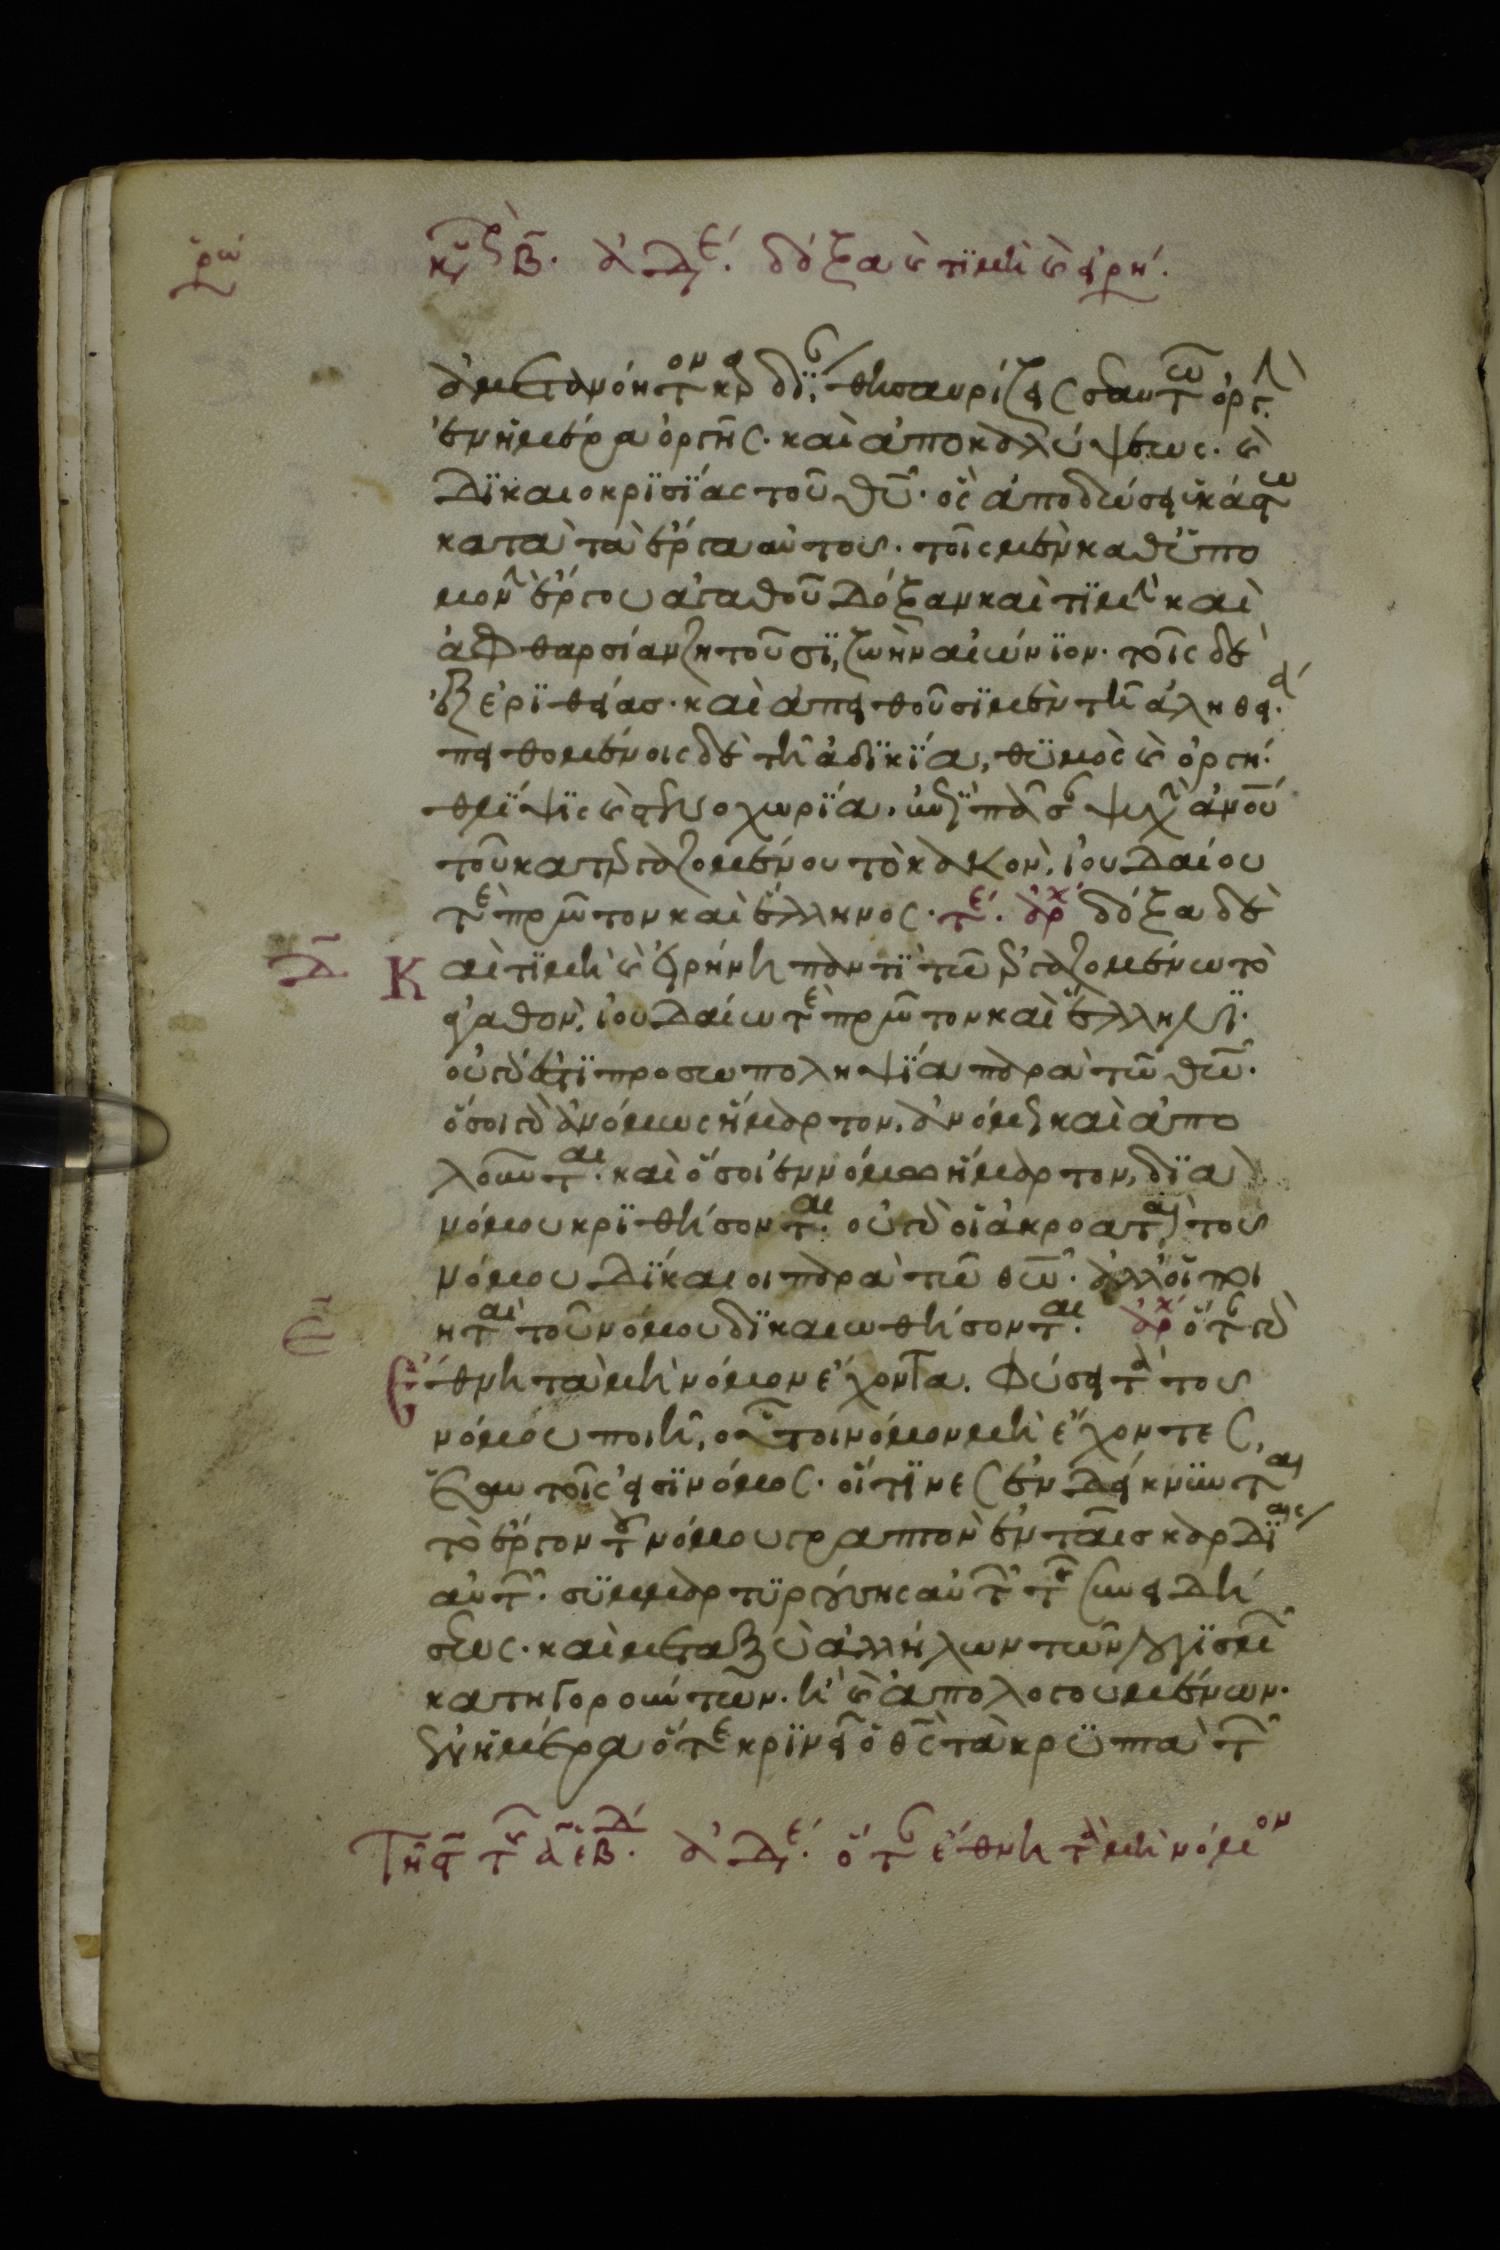 ρω
κυ β. ἀδε. δόξα κ τϊμὴ κ εἰρη.
ἀμετανόητον καρδΐαν, θησαυρίζεις σεαυτῶ ὀργὴν
ἐν ἡμέρα ὀργῆς. καὶ ἀποκαλύψεως. κ
δϊκαιοκρϊσϊας τοῦ θῦ. ὃς ἀποδώσει ἑκάστω
κατὰ τὰ ἔργα αὐτοῦ. τοῖς μὲν καθ ὑπο
μονὴν ἔργου ἀγαθοῦ δόξαν καὶ τϊμὴν καὶ
ἀφθαρσίαν ζητοῦσϊ, ζωὴν αἰώνϊον. τοῖς δὲ
ἐξ ἐρϊθείας. καὶ ἀπειθοῦσϊ μὲν τῆ ἀληθεία.
πειθομένοις δὲ τῆ ἀδϊκϊα, θϋμὸς κ ὀργή.
θλΐψϊς κ στενοχωρΐα. ἐπὶ πᾶσαν ψυχὴν ἀνοῦ
τοῦ κατεργαζομένου τὸ κακὸν, ἰουδαίου
τε πρῶτον καὶ ἕλληνος. τε. ἀρχ δόξα δὲ
δ Καὶ τϊμὴ κ εἰρήνη παντϊ τῶ ἐργαζομένω τὸ
ἀγαθὸν, ἰουδαίω τε πρῶτον καὶ ἕλληνϊ.
οὐ γάρ ἐστϊ προσωποληψϊα παρὰ τῶ θῶ.
ὅσοι γὰρ ἀνόμως ἥμαρτον, ἀνόμως καὶ ἀπο
λοῦνται. καὶ ὅσοι ἐν νόμω ἥμαρτον, δϊὰ
νόμου κρϊθήσονται. οὐ γὰρ οἱ ἀκροαταὶ τοῦ
νόμου δΐκαιοι παρὰ τῶ θῶ. ἀλλ οἱ ποι
ηταὶ τοῦ νόμου δϊκαιωθήσονται. ἀρχ ὅταν γὰρ
ε Ἔθνη τὰ μὴ νόμον ἔχοντα. φύσει τὰ τοῦ
νόμου ποιῆ, οὗτοι νόμον μὴ ἔχοντες,
ἑαυτοῖς εἰσϊ νόμος. οἵτϊνες ἐνδείκνϋνται
τὸ ἔργον τοῦ νόμου γραπτὸν ἐν ταῖς καρδϊαις
αὐτῶν. σϋμμαρτϋρούσης αὐτῶν τῆς συνειδή
σεως. καὶ μεταξὺ ἀλλήλων τῶν λογϊσμῶν
κατηγορούντων. ἢ κ ἀπολογουμένων.
ἐν ἡμέρα ὅτε κρϊνεῖ ὁ θς τὰ κρϋπτὰ τῶν
Τῆ τῆς α εβ δ. ἀδε. ὅταν ἔθνη τὰ μὴ νόμον